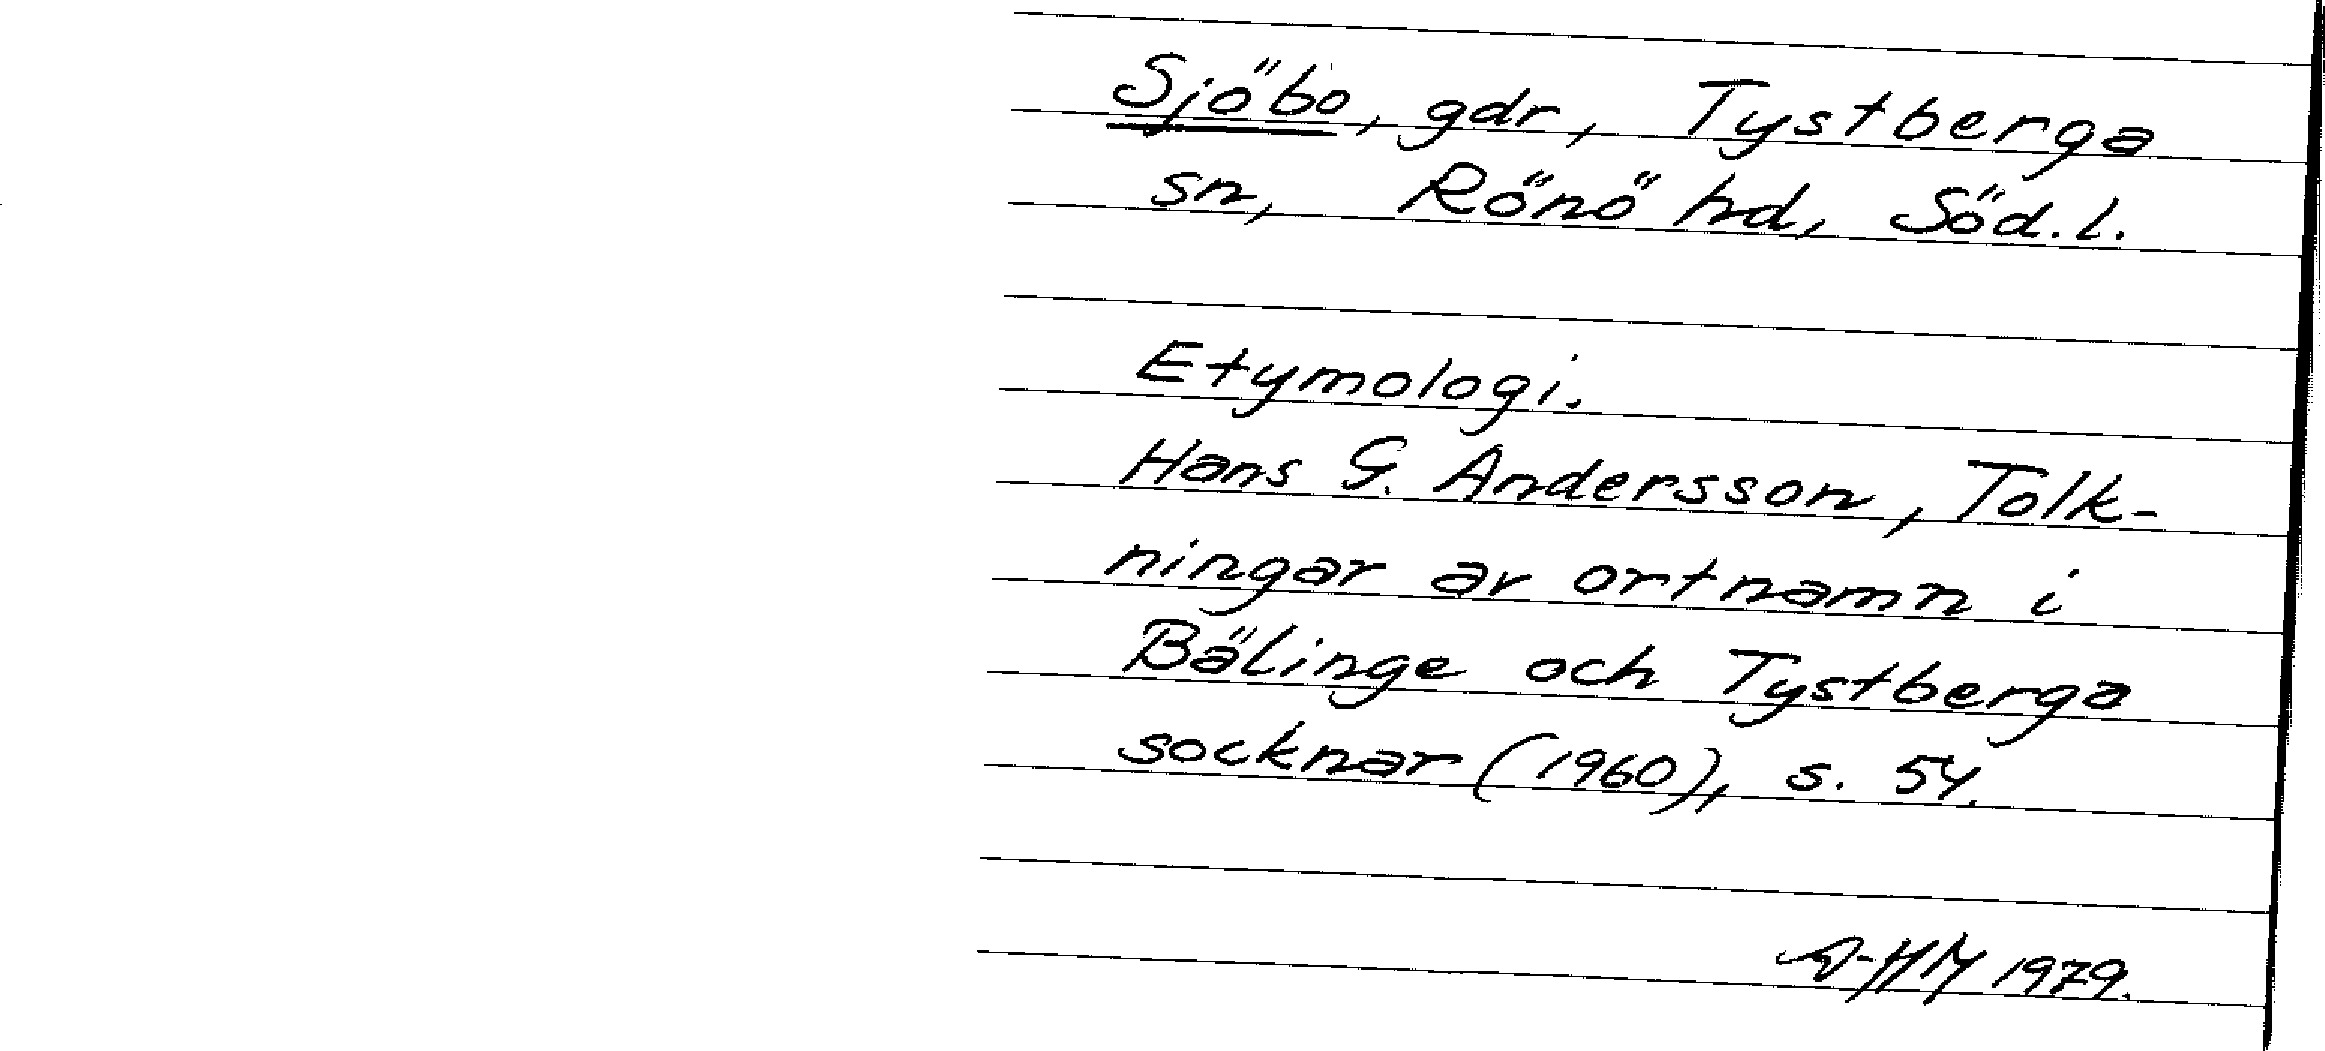 Sjöbo, gdr, Tystberga
sn, Rönö hd, Söd.l.
Etymologi.
Hans G. Andersson, Tolk-
ningar av ortnamn i
Bälinge och Tystberga
socknar (1960), s. 54.
1979.